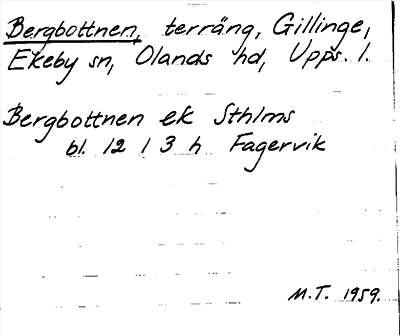 Bergbottnen, terräng, Gillinge,
Ekeby sn, Olands hd, Upps. l.
Bergbottnen ek Sthlms
bl. 12 1 3 h Fagervik
M.T. 1959.